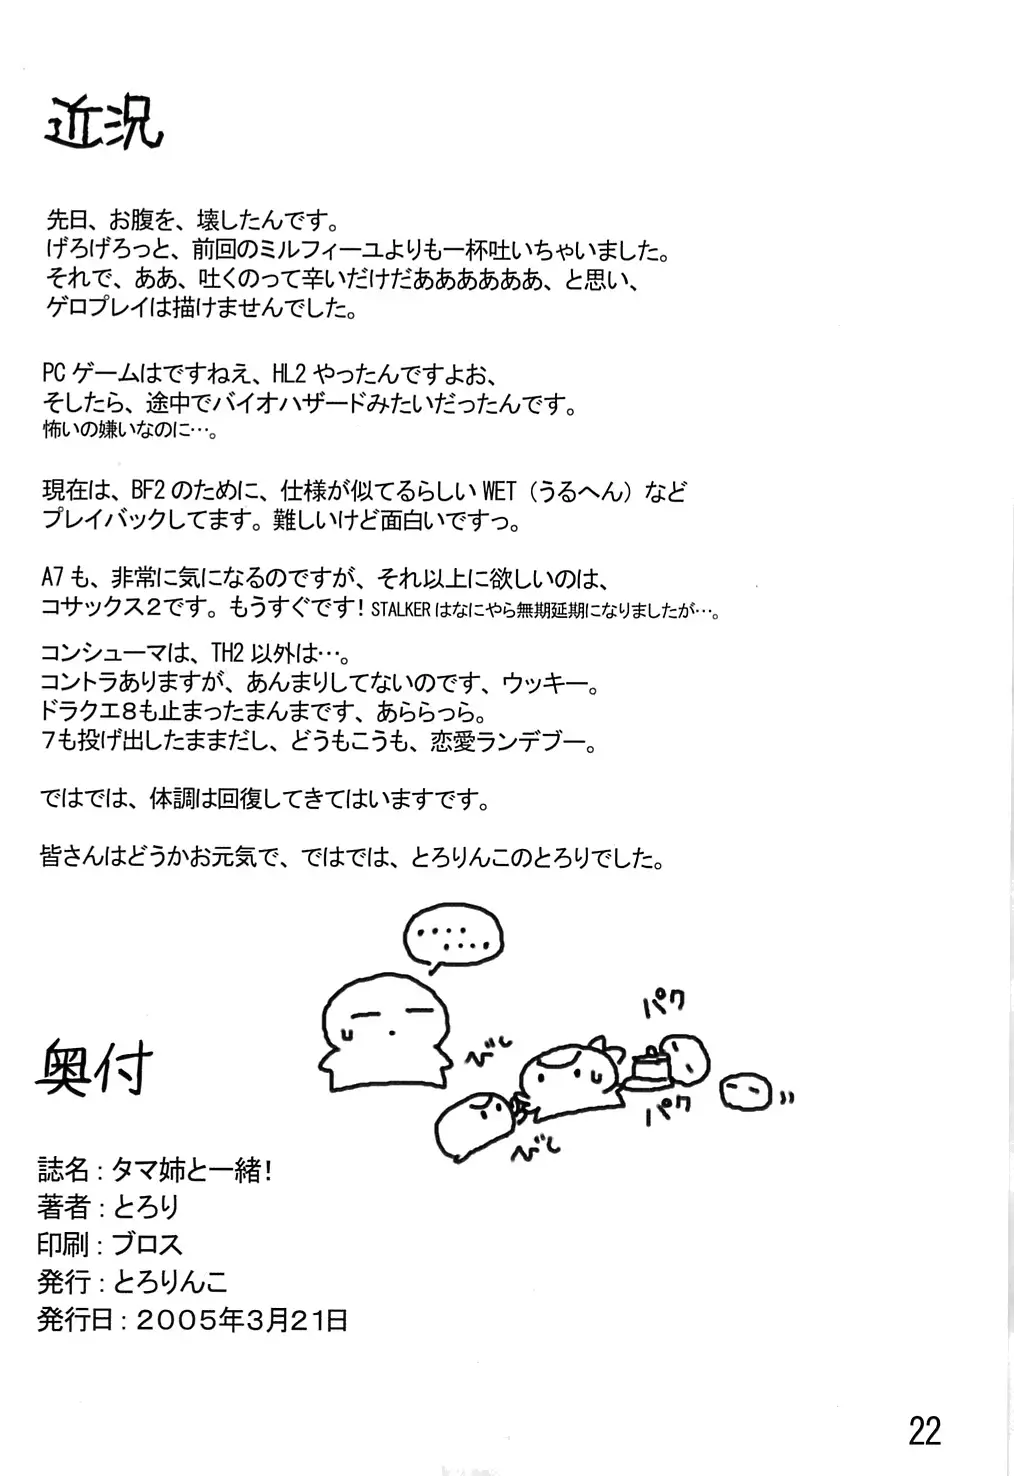 近況
先日、お腹を、壊したんです。
げろげろっと、前回のミルフィーユよりも一杯吐いちゃいました。
それで、ああ、吐くのって辛いだけだああああああ、と思い、
ゲロプレイは描けませんでした。
PCゲームはですねえ、HL2やったんですよお、
そしたら、途中でバイオハザードみたいだったんです。
怖いの嫌いなのに…。
現在は、BF2のために、仕様が似てるらしいWET（うるへん）など
プレイバックしてます。難しいけど面白いですっ。
A7も、非常に気になるのですが、それ以上に欲しいのは、
コサックス２です。もうすぐです！STALKERはなにやら無期延期になりましたが…。
コンシューマは、TH2以外は…。
コントラありますが、あんまりしてないのです、ウッキー。
ドラクエ８も止まったまんまです、あららっら。
７も投げ出したままだし、どうもこうも、恋愛ランデブー。
ではでは、体調は回復してきてはいますです。
皆さんはどうかお元気で、ではでは、とろりんこのとろりでした。
‥‥
‥‥
パク
びし
パク
びし
奥付
誌名：タマ姉と一緒！
著者：とろり
印刷：ブロス
発行：とろりんこ
発行日：２００５年３月２１日
22